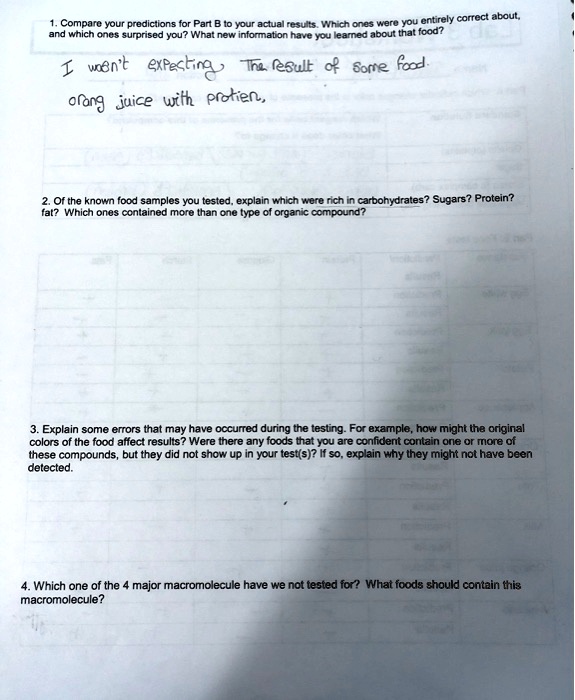 1. Compare your predictions for Part B to your actual results. Which ones were you entirely correct about,
and which ones surprised you? What new information have you learned about that food?
I wasn't expecting, The result of some food.
orang juice with protien,
2. Of the known food samples you tested, explain which were rich in carbohydrates? Sugars? Protein?
fat? Which ones contained more than one type of organic compound?
3. Explain some errors that may have occurred during the testing. For example, how might the original
colors of the food affect results? Were there any foods that you are confident contain one or more of
these compounds, but they did not show up in your test(s)? If so, explain why they might not have been
detected.
4. Which one of the 4 major macromolecule have we not tested for? What foods should contain this
macromolecule?